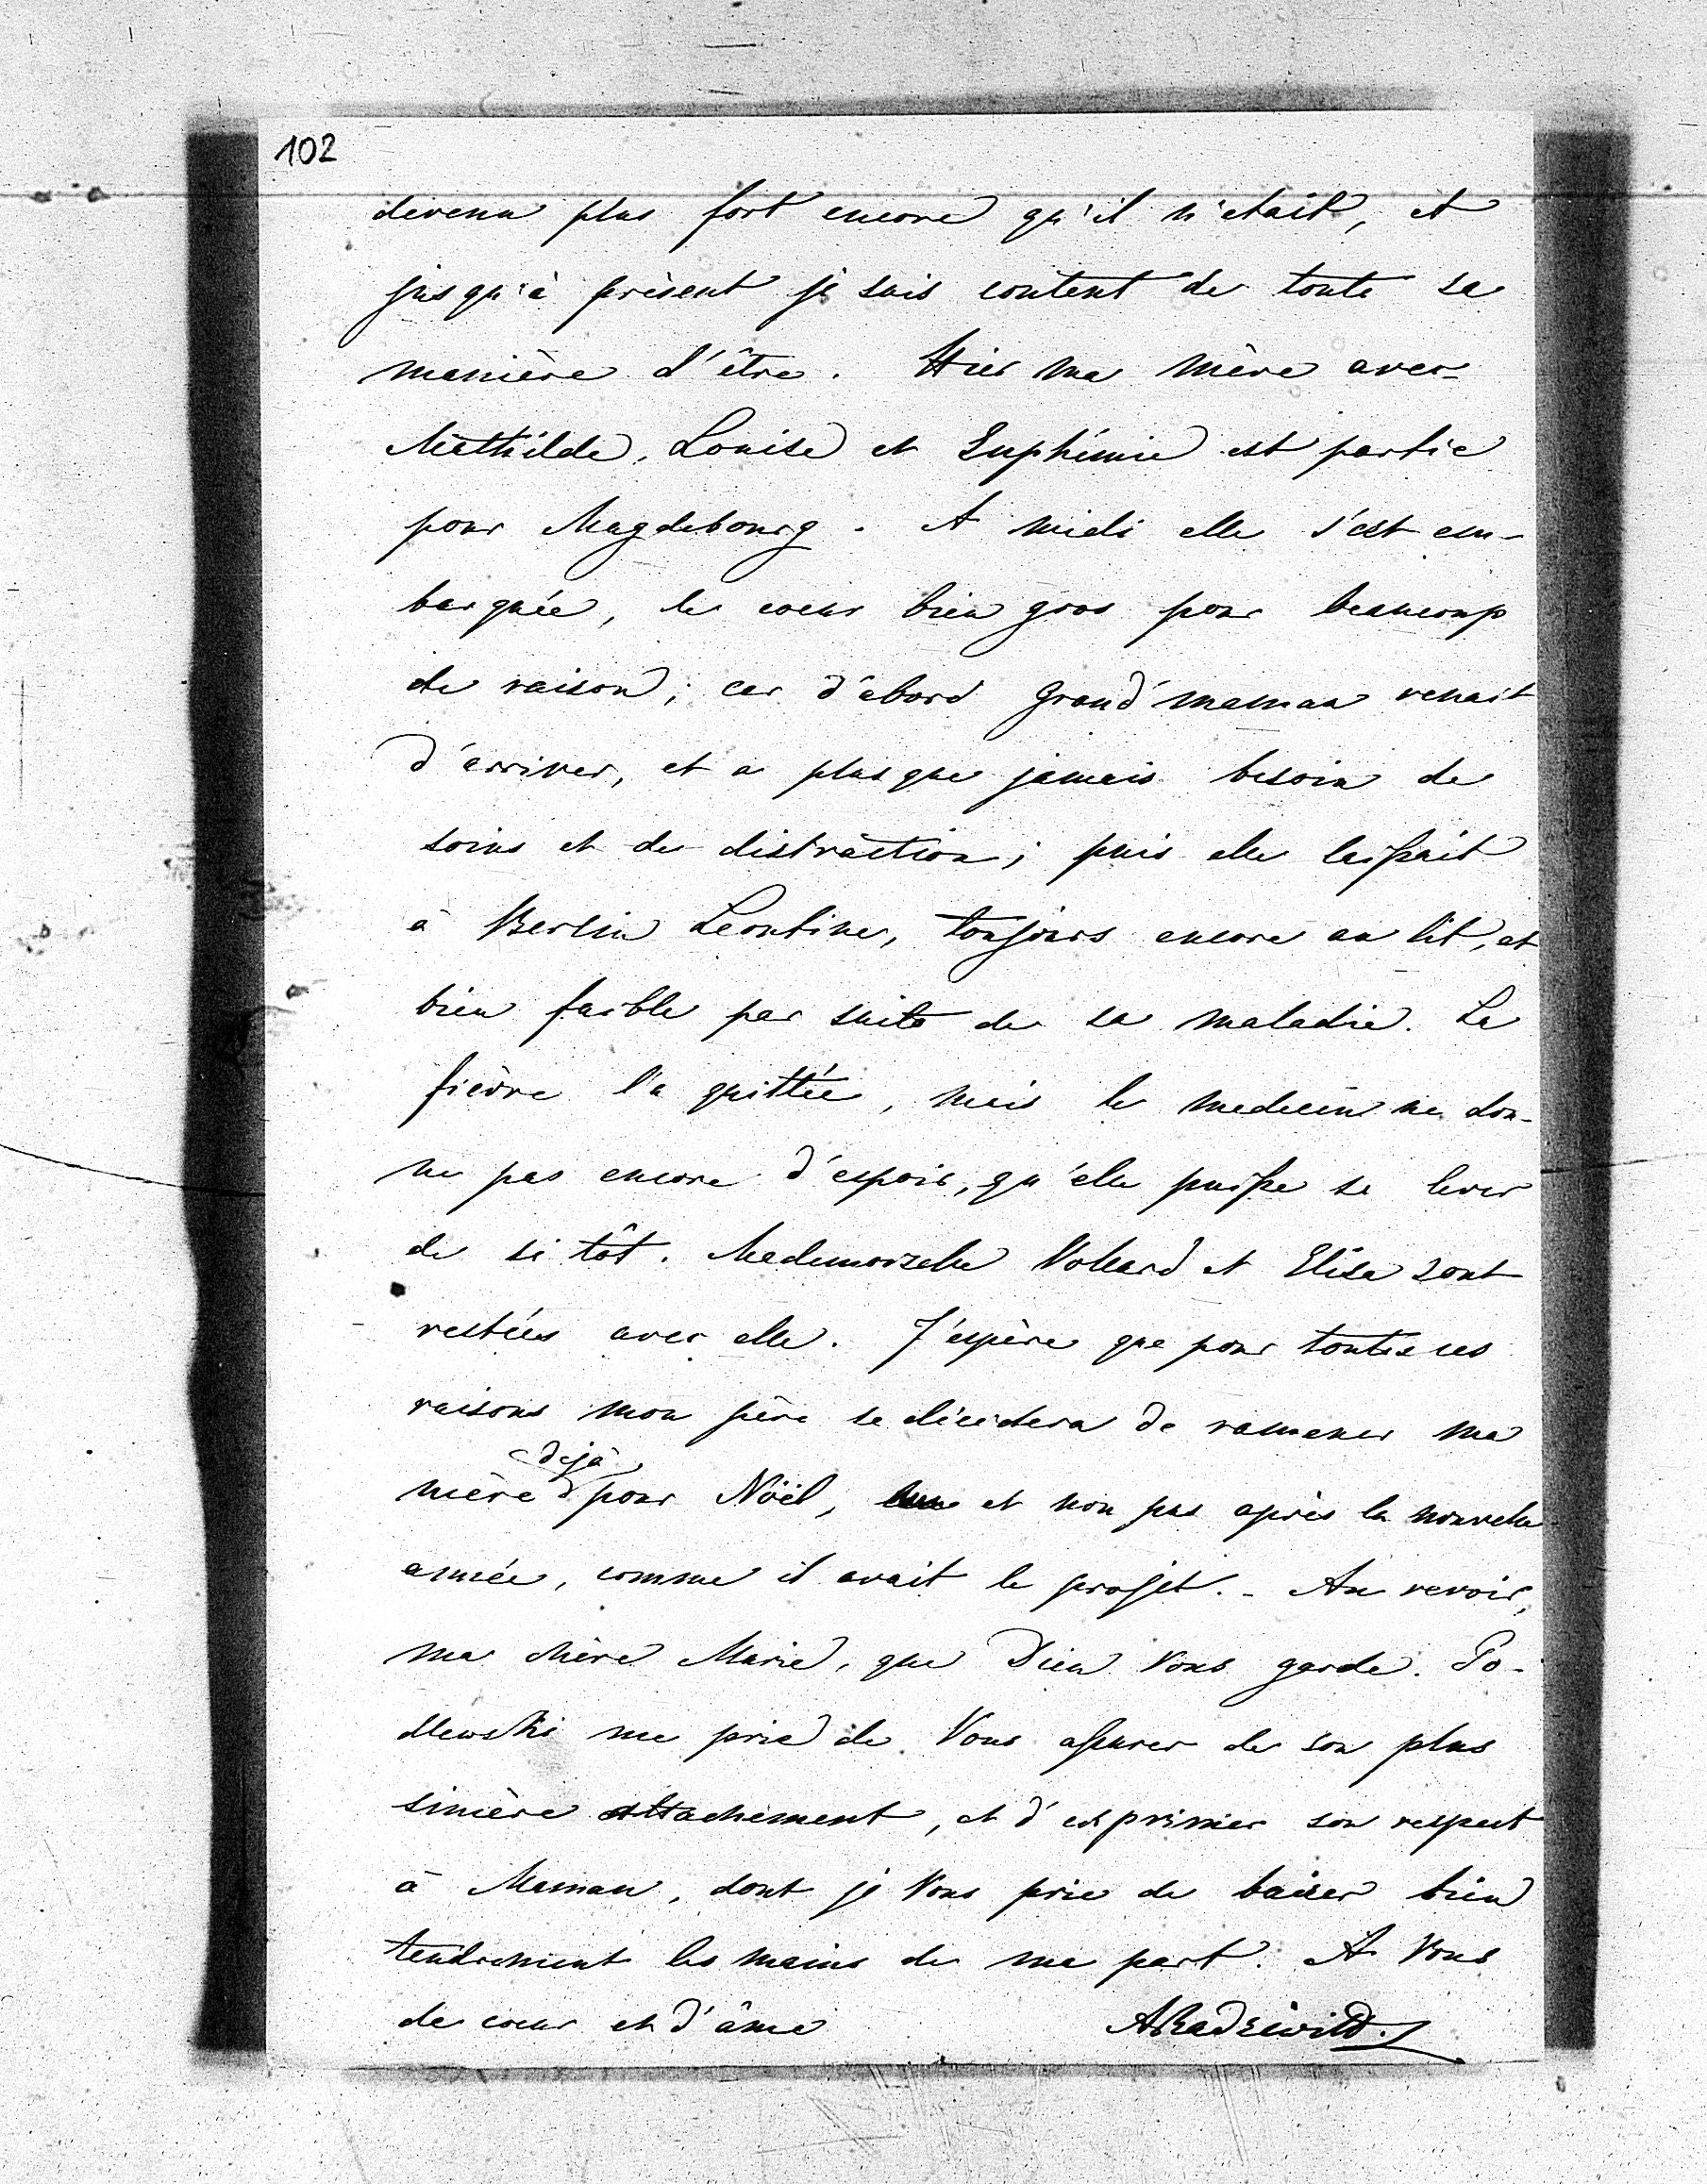 102
devenu plus fort encore qu'il n'etait, et
jusqu'à présent je suis content de toute sa
manière d'être. Hier ma mère avec
Mathilde, Louise et Euphémie est partie
pour Magdebourg. A midi elle s'est em-
barquée, le coeur bien gros pour beaucoup
de raison; car d'abord Grand'maman venait
d'arriver, et a plus que jamais besoin de
soins et de distraction; puis elle laissait
à Berlin Leontine, toujours encore au lit, et
bien faible par suite de sa maladie. La
fièvre l'a quittée, mais le medecin ne don-
ne pas encore d'espoir, qu'elle puisse se lever
de si tôt. Mademoiselle Vollard et Elise sont
restées avec elle. J'espère que pour toutes ces
raisons mon père se décidera de ramener ma
déjà
mère pour Noël, et non pas après la nouvelle
année, comme il avait le projet. - Au revoir,
ma chère Marie, que Dieu Vous garde. Po-
dlewski me prie de Vous assurer de son plus
sincère attachement, et d'exprimer son respect
à Maman, dont je Vous prie de baiser bien
tendrement les mains de ma part. A Vous
de coeur et d'âme
ARadziwill.